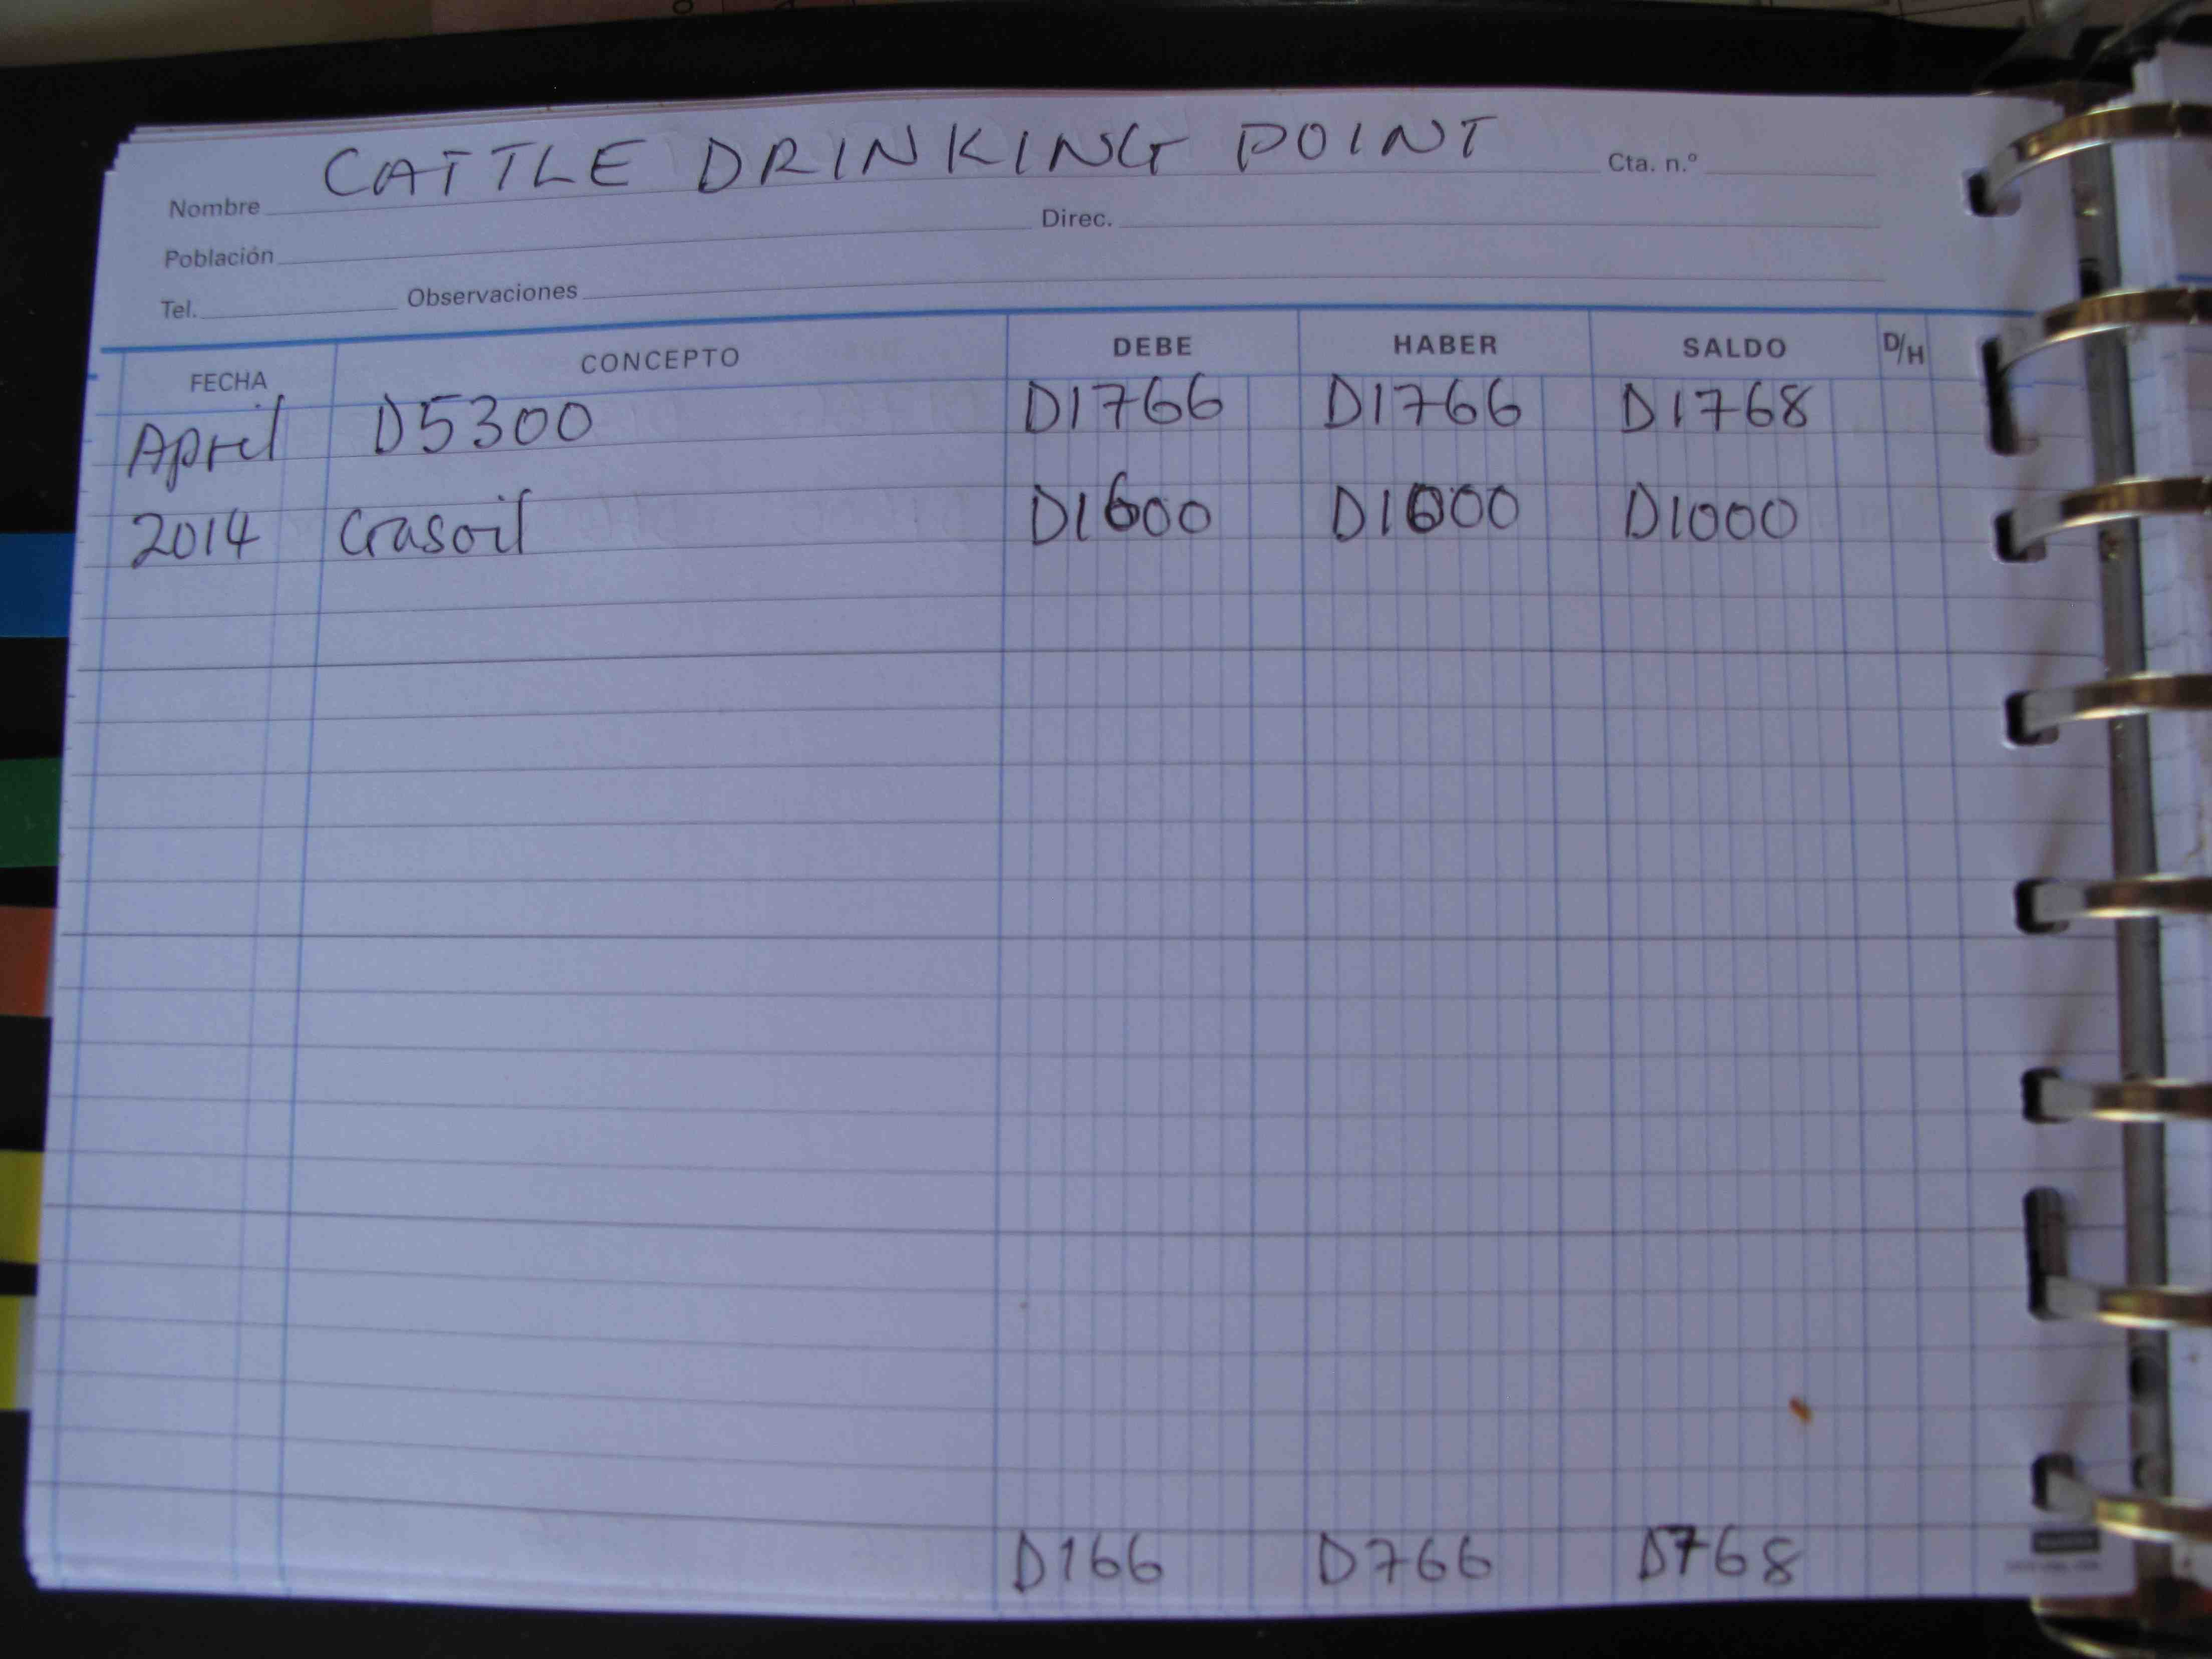 CATTLE DRINKING POINT
Nombre Cta. n.º
Población Direc.
Tel. Observaciones
FECHA CONCEPTO DEBE HABER SALDO D/H
April D5300 D1766 D1766 D1768
2014 Gasoil D1600 D1000 D1000
D166 D766 D768